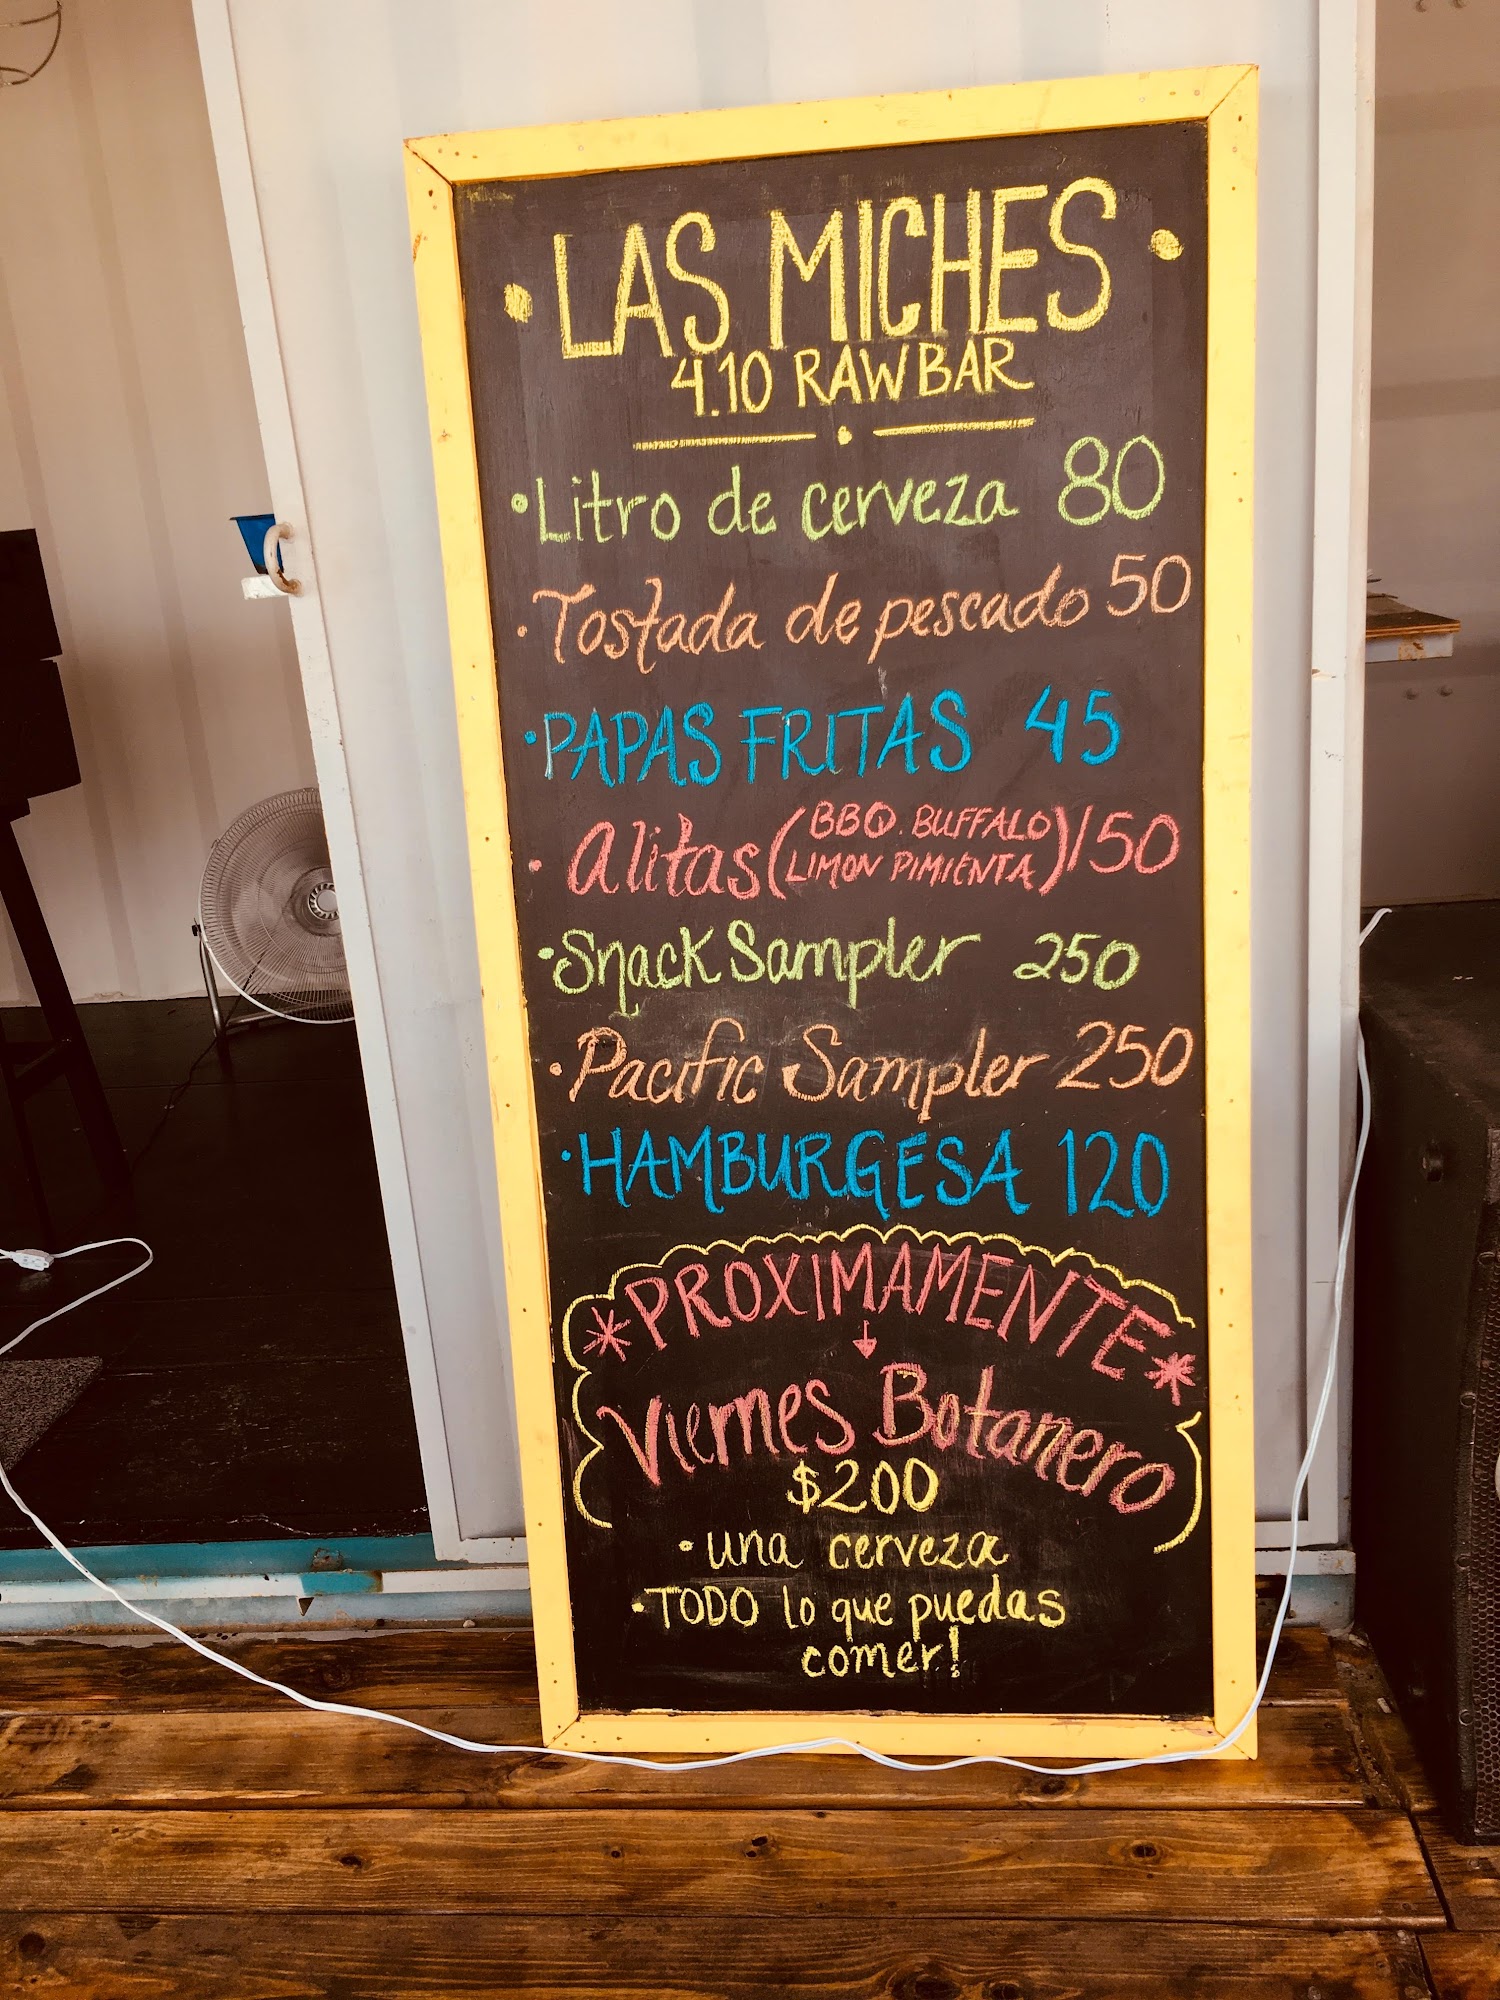 • LAS MICHES •
4.10 RAWBAR
• Litro de cerveza 80
• Tostada de pescado 50
• PAPAS FRITAS 45
• Alitas (BBQ. BUFFALO
LIMON PIMIENTA) 150
• Snack Sampler 250
• Pacific Sampler 250
• HAMBURGESA 120
* PROXIMAMENTE *
Viernes Botanero
$200
• una cerveza
• TODO lo que puedas
comer!